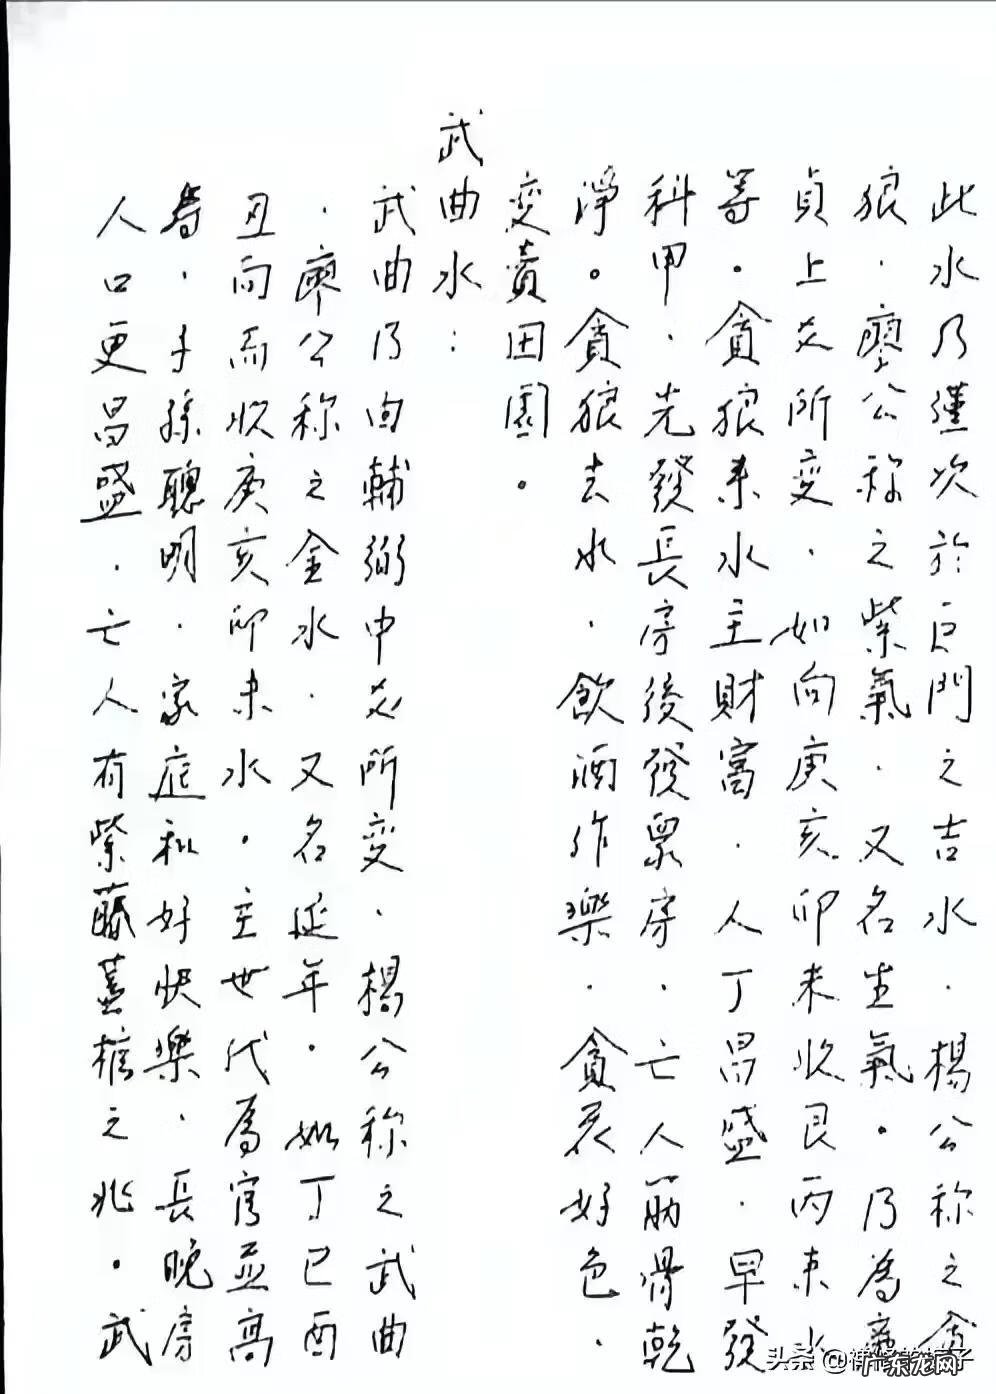 此水乃僅次於巨門之吉水.楊公称之貪
狼.廖公称之紫氣.又名生氣。乃為廉
貞上爻所变.如向庚亥卯未收艮丙来水
等.貪狼来水主財富.人丁昌盛.早發
科甲.先發長房後發眾房.亡人筋骨乾
淨。貪狼去水.飲酒作樂.貪花好色.
变賣田園。
武曲水：
武曲乃由輔弼中爻所变.楊公称之武曲
.廖公称之金水.又名延年.如丁巳酉
丑向而收庚亥卯未水.主世代為官並高
寿.子孫聰明.家庭和好快樂.長晚房
人口更昌盛.亡人有紫藤蓋棺之兆.武
头条@
广东龙网